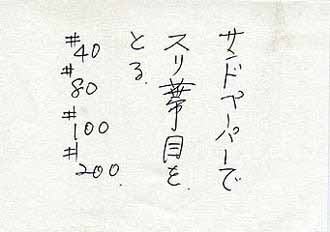 サンドペーパーで
スリ 目を
とる.
#40
#80
#100
#200.